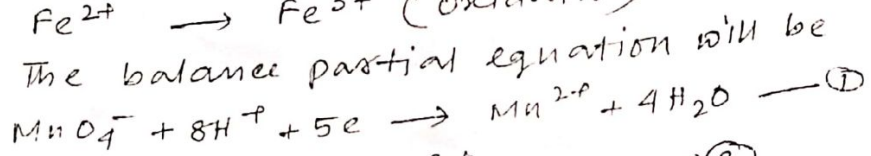 Fe²⁺ ⟶ Fe³⁺
The balance partial equation will be
MnO₄⁻ + 8H⁺ + 5e ⟶ Mn²⁺ + 4H₂O —①